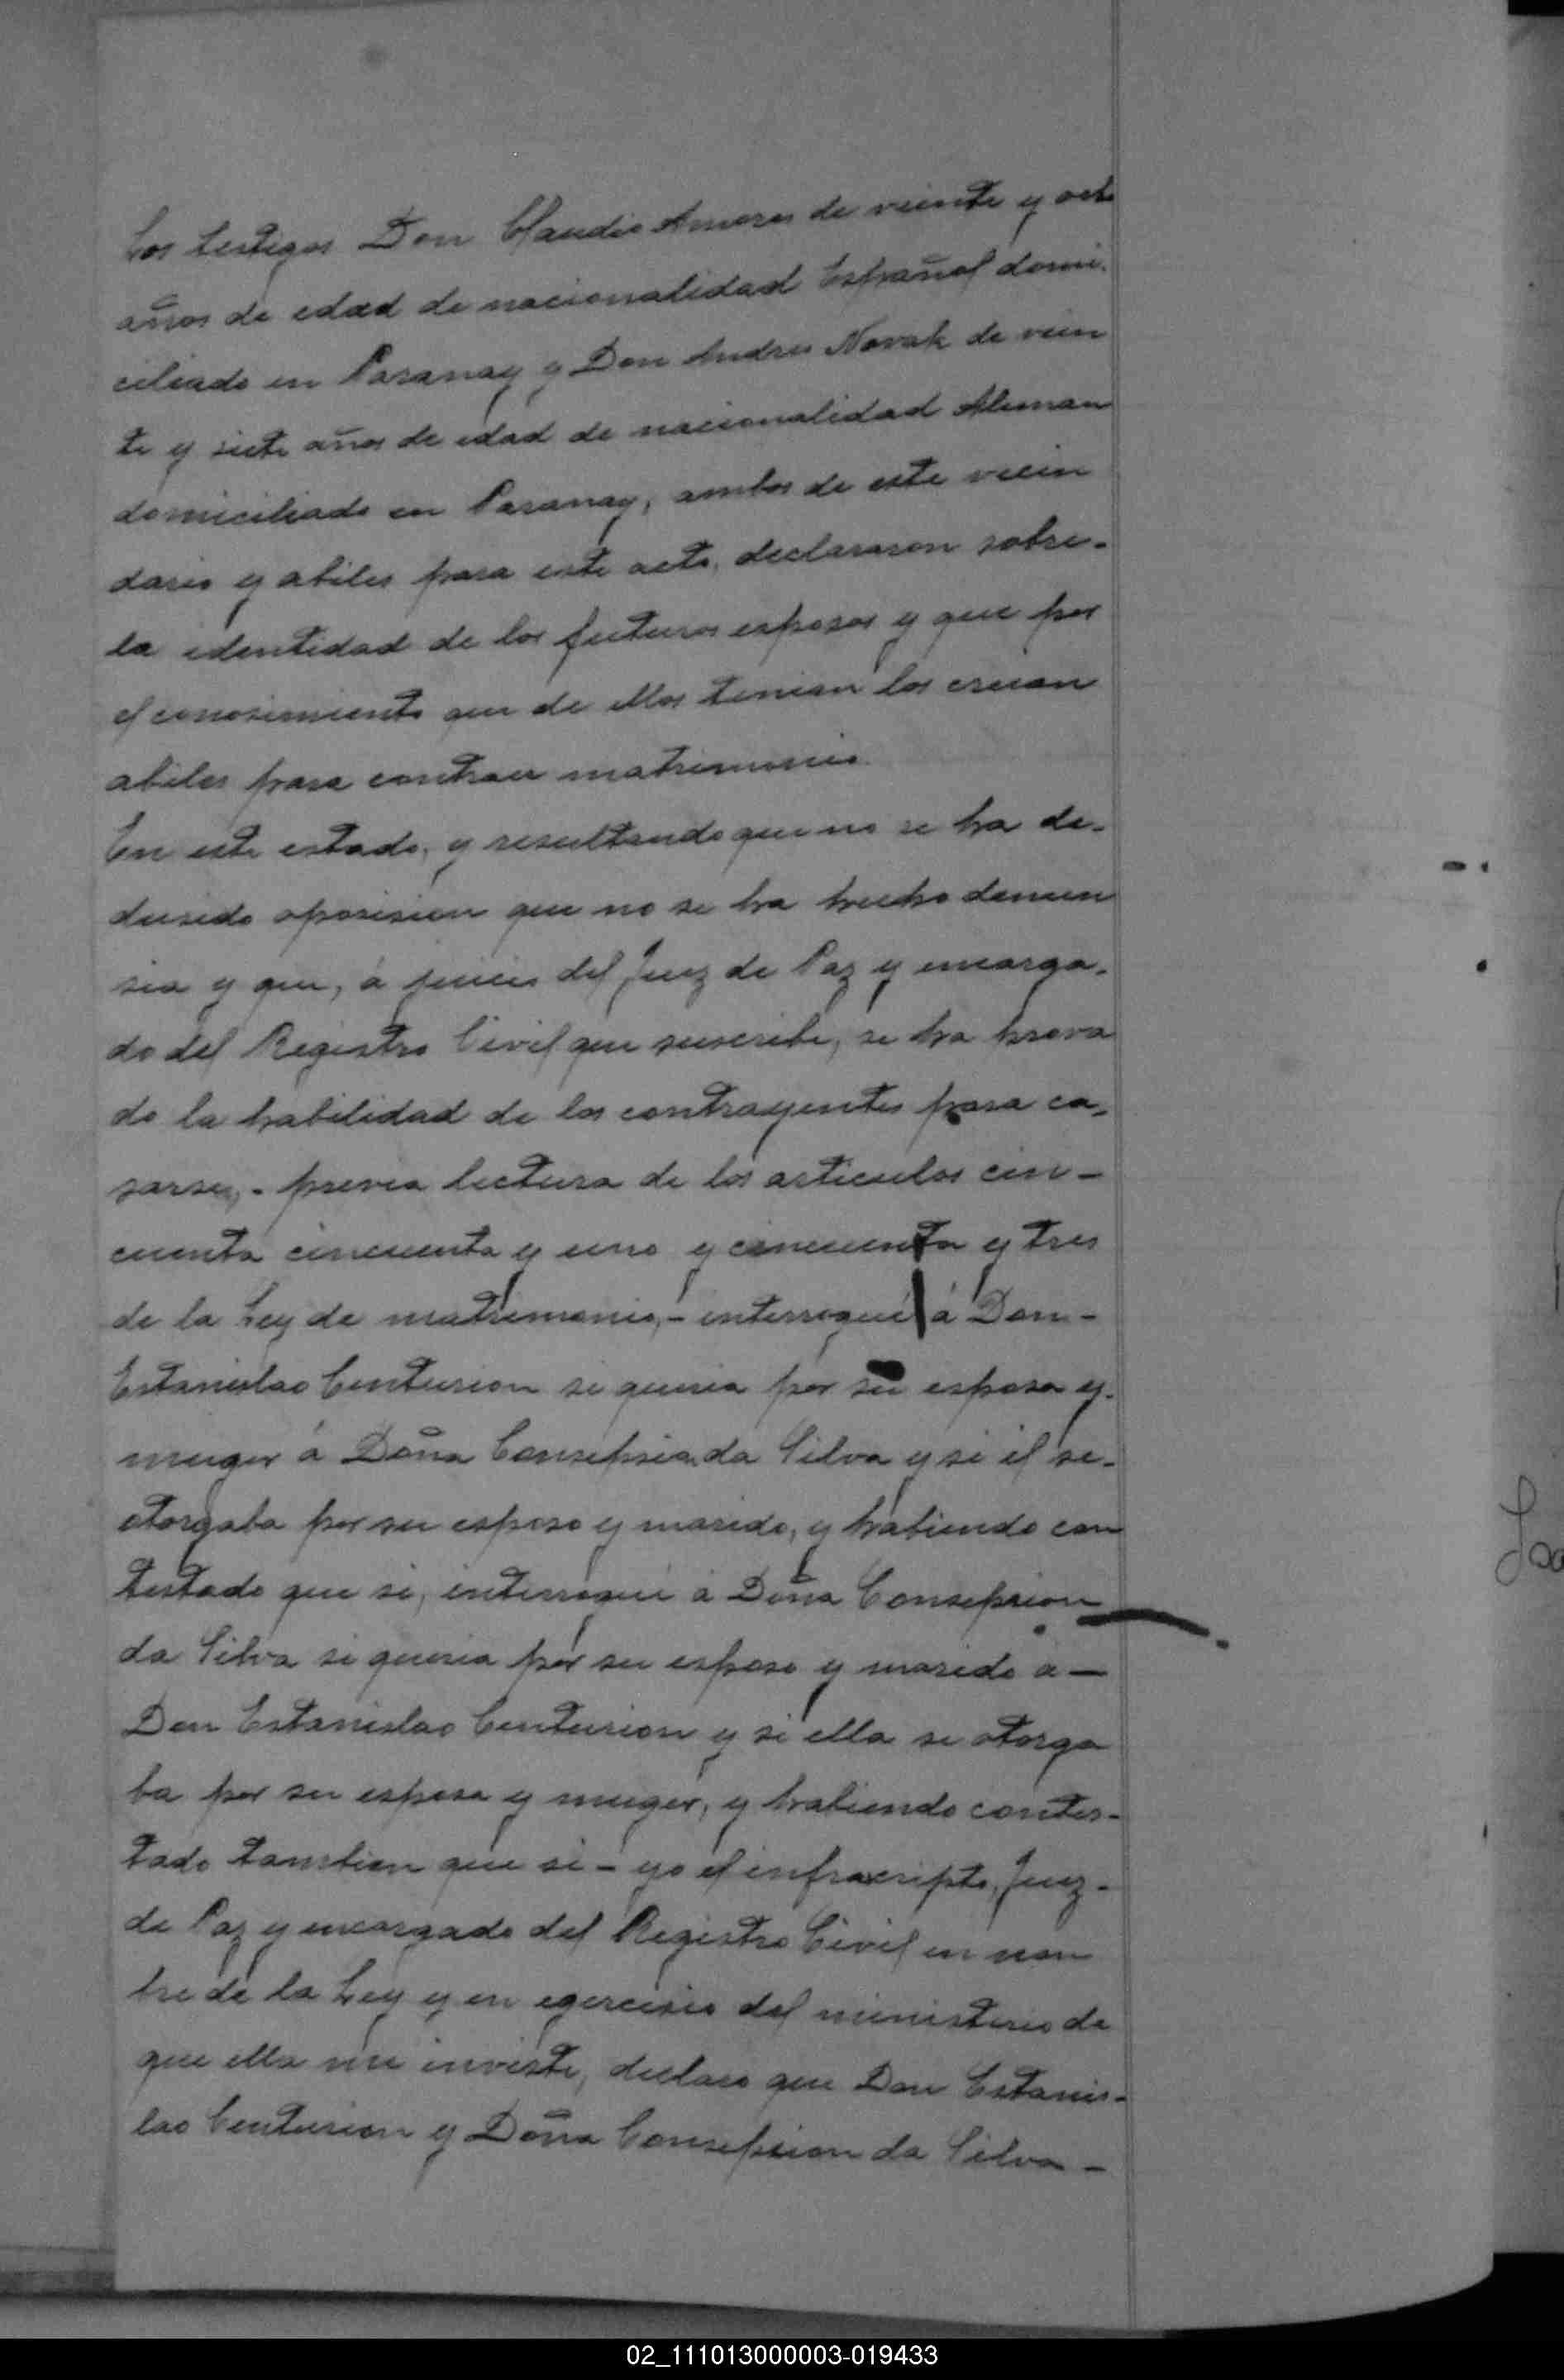 Los testigos Don Claudio Amores de veinte y ocho
años de edad de nacionalidad Español domi-
ciliado en Paranay y Don Andres Novak de vein
te y siete años de edad de nacionalidad Aleman
domiciliado en Paranay, ambos de este vecin
dario y abiles para este acto, declararon sobre-
la identidad de los futuros esposos y que por
el conosimiento que de ellos tenian los creian
abiles para contraer matrimonio.
En este estado, y resultando que no se ha de-
dusido oposision que no se ha hecho denun
sia y que, á juicio del Juez de Paz y encarga-
do del Registro Civil que suscribe, se ha prova
do la habilidad de los contrayentes para ca-
sarse, - previa lectura de los articulos cin-
cuenta cincuenta y uno y cincuenta y tres
de la Ley de matrimonio, - interrogué á Don-
Estanislao Centurion si queria por su esposa y-
muger á Doña Consepsion da Silva y si él se-
otorgaba por su esposo y marido, y habiendo con
testado que si, interrogué á Doña Consepsion
da Silva si queria por su esposo y marido á -
Don Estanislao Centurion y si ella se otorga
ba por su esposa y muger, y habiendo contes-
tado tambien que si - yo el infrascripto, Juez-
de Paz y encargado del Registro Civil en nom
bre de la Ley y en egercisio del ministerio de
que ella me inviste, declaro que Don Estanis-
lao Centurion y Doña Consepsion da Silva -
02_111013000003-019433